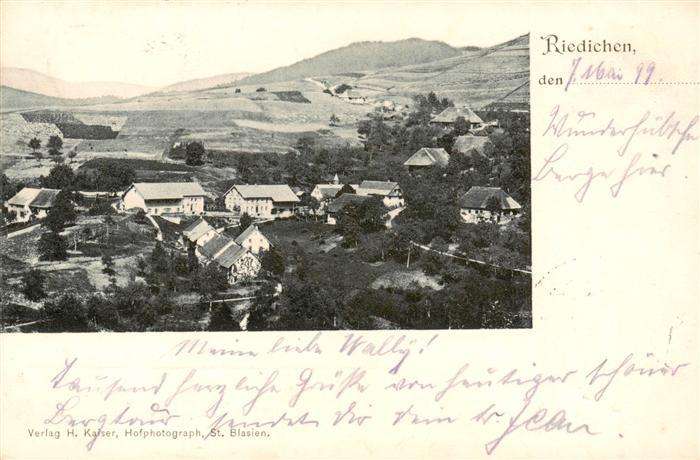 Riedichen,
den 7 Mai 99
Wunderhübsche
Berge hier
Meine liebe Wally!
Tausend herzliche Grüße von heutiger schöner
Bergtour sendet dir dein tr. Jean
Verlag H. Kaiser, Hofphotograph, St. Blasien.